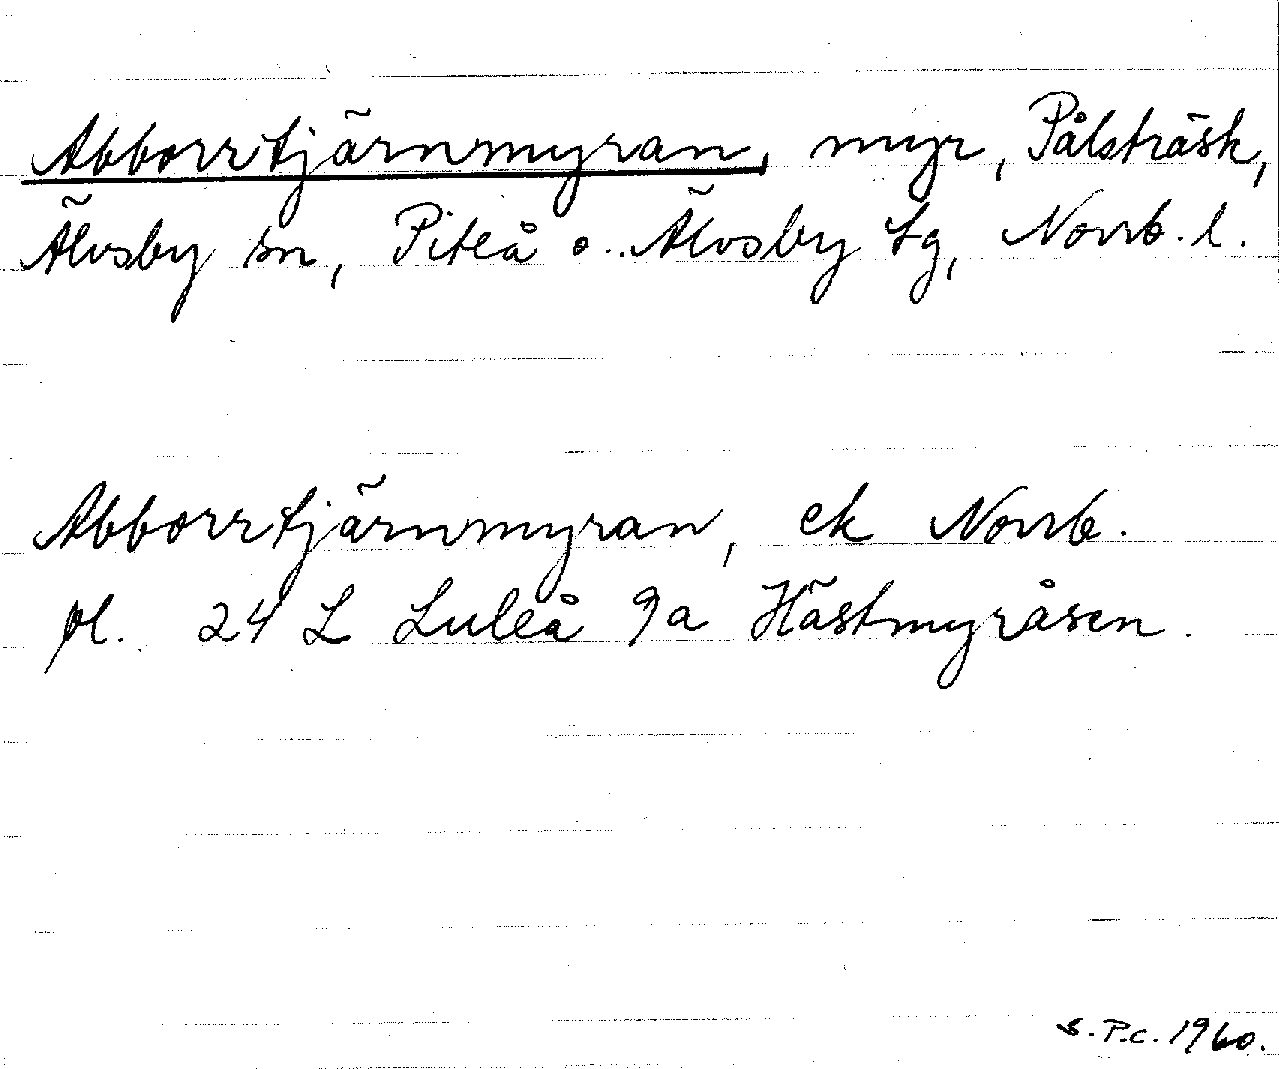 Abborrtjärnmyran, myr, Pålsträsk,
Älvsby sn, Piteå o. Älvsby tg, Norrb. l.
Abborrtjärnmyran, ek Norrb.
pl. 24 L Luleå 9a Hästmyråsen.
S.P.C. 1960.